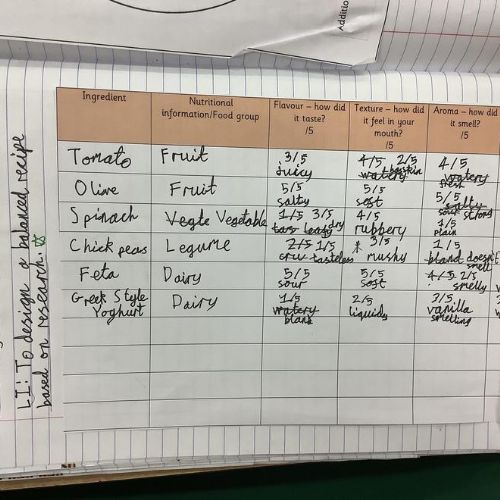 Additio
LI: To design a balanced recipe
based on research.
Ingredient
Nutritional
information/Food group
Flavour – how did
it taste?
/5
Texture – how did
it feel in your
mouth?
/5
Aroma – how did
it smell?
/5
Tomato
Fruit
3/5
juicy
4/5 2/5
watery
4/5
watery
fresh
Olive
Fruit
5/5
salty
5/5
sost
5/5
salty
sour strong
Spinach
Vegte Vegetable
1/5 3/5
leafy dry
4/5
rubbery
1/5
plain
Chick peas
Legume
2/5 1/5
tasteless
3/5
mushy
1/5
bland doesn't
smell
Feta
Dairy
5/5
sour
5/5
sost
4/5 2/5
smelly
Greek Style
Yoghurt
Dairy
1/5
watery
blank
2/5
liquidy
3/5
vanilla
smelling